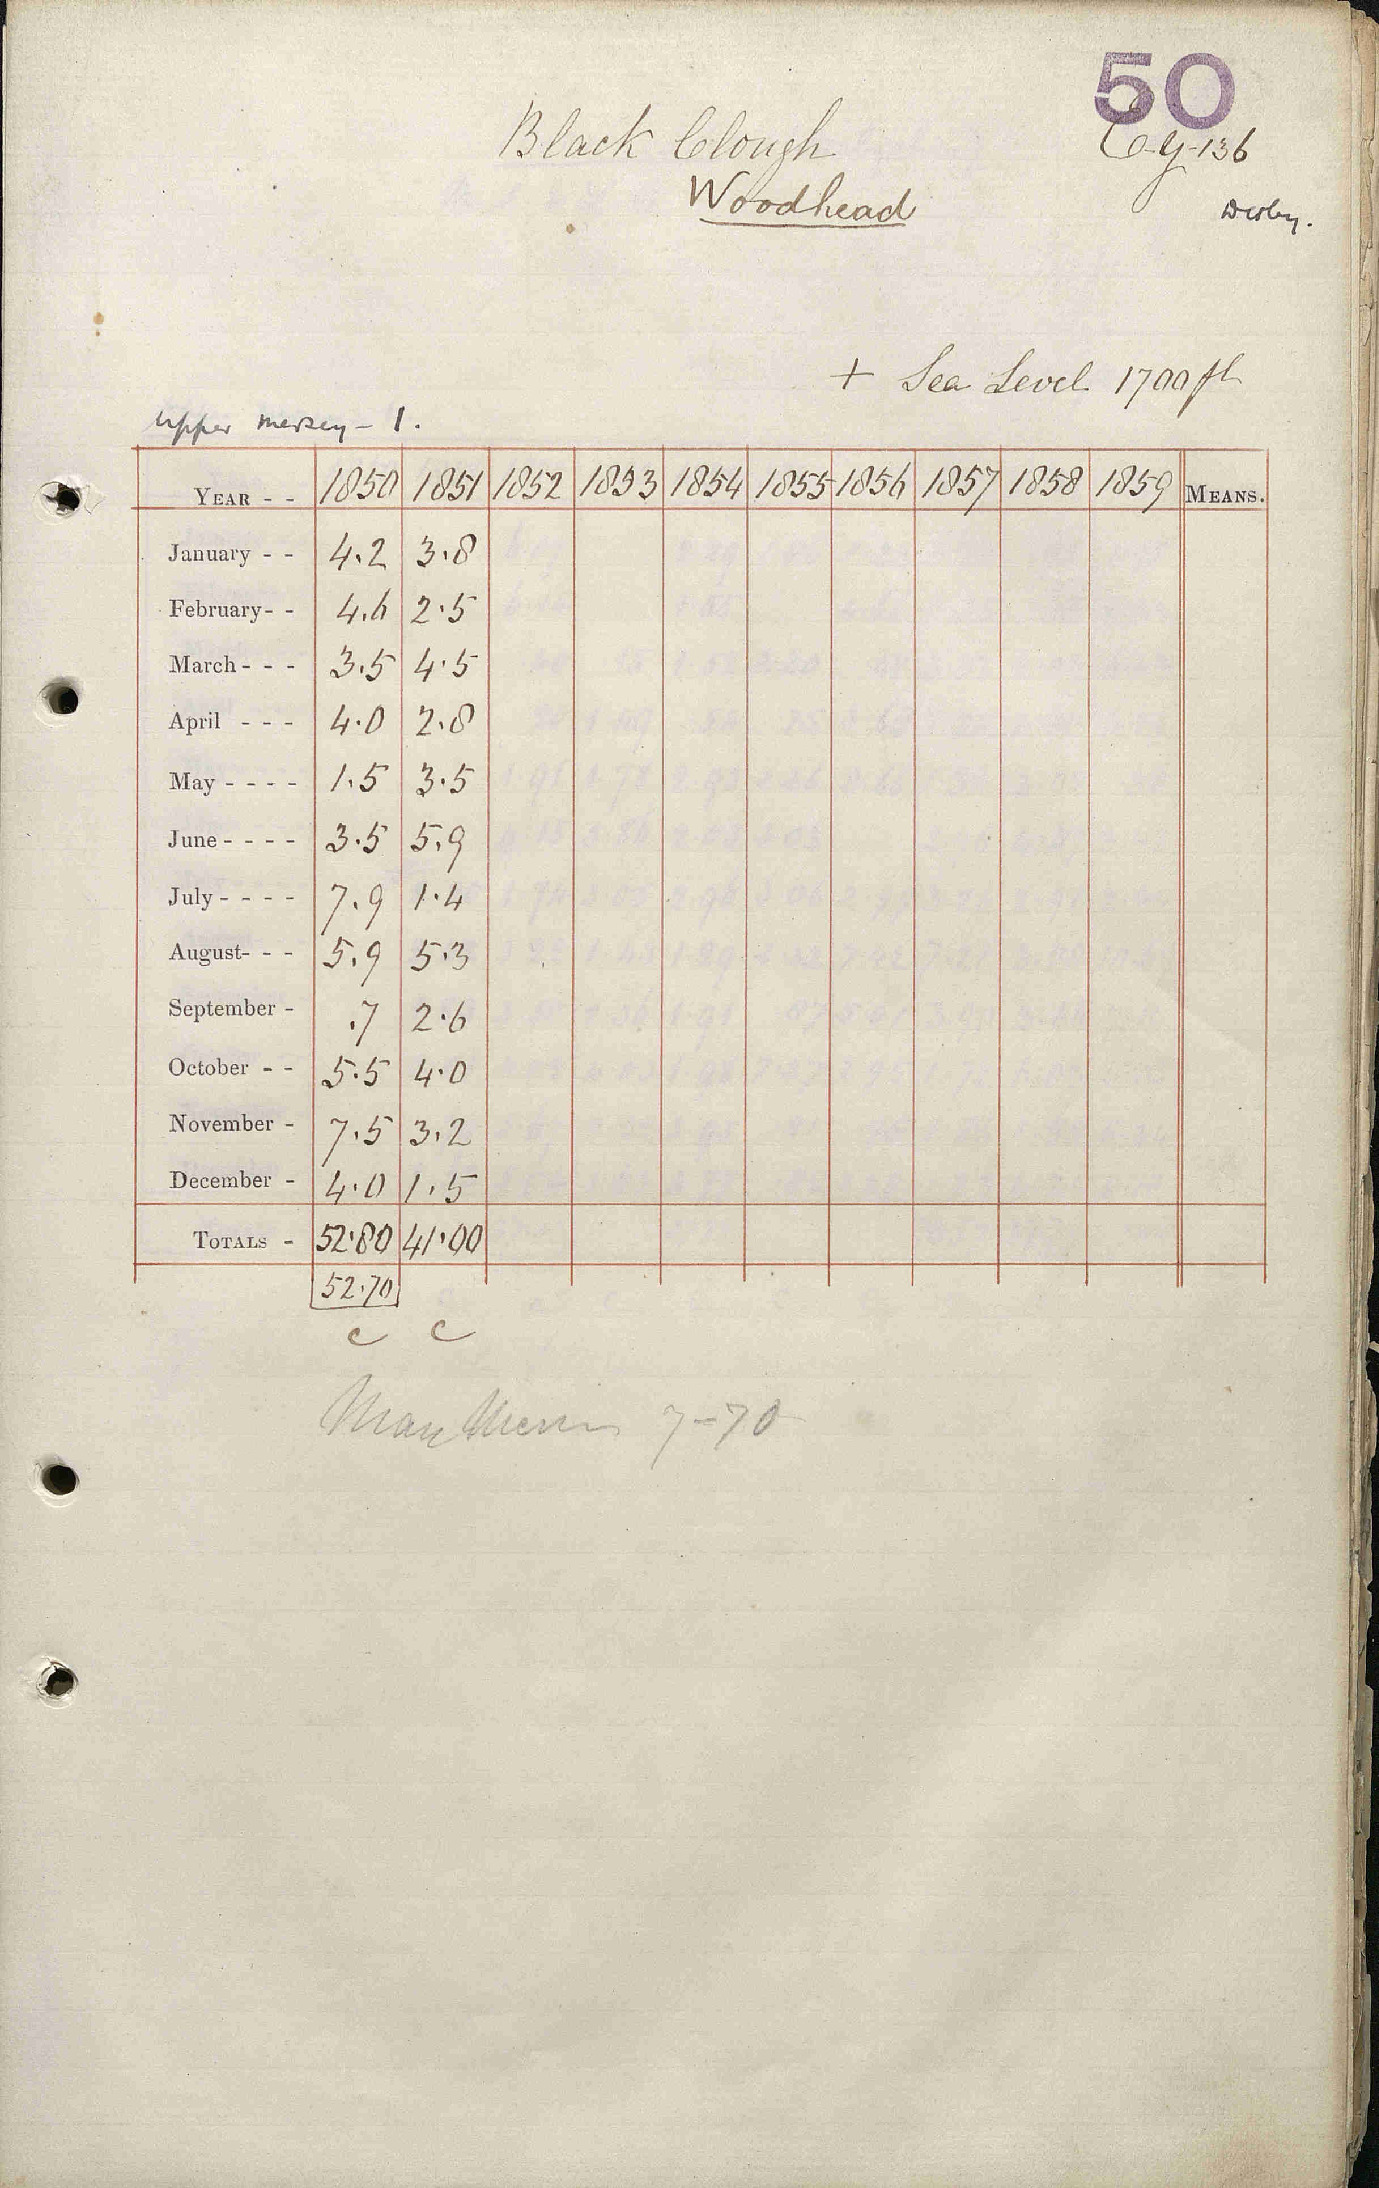 50
Black Clough
Woodhead
136
Derby.
+ Sea Level 1700 ft
Upper Mersey - 1.
YEAR - - 1850 1851 1852 1853 1854 1855 1856 1857 1858 1859 MEANS.
January - - 4.2 3.8
February - - 4.6 2.5
March - - - 3.5 4.5
April - - - 4.0 2.8
May - - - - 1.5 3.5
June - - - - 3.5 5.9
July - - - - 7.9 1.4
August - - - 5.9 5.3
September - .7 2.6
October - - 5.5 4.0
November - 7.5 3.2
December - 4.0 1.5
TOTALS - 52.80 41.00
52.70
c c
7-70